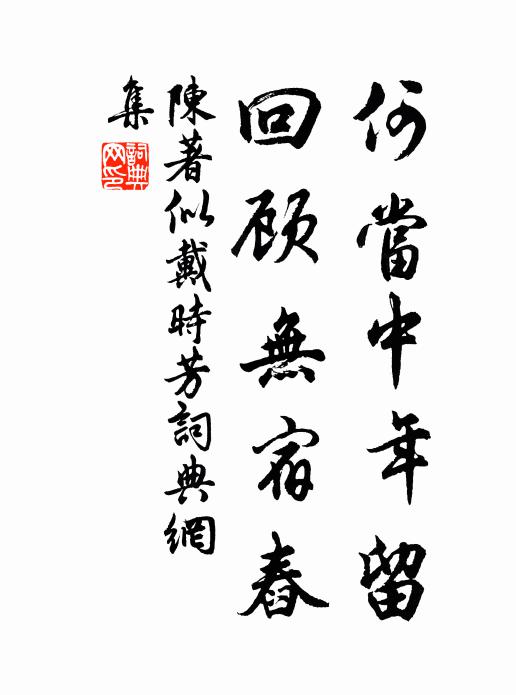 何當中年留
回顾無宿舂
陳著似戴時芳詞典網
集
詞典网印